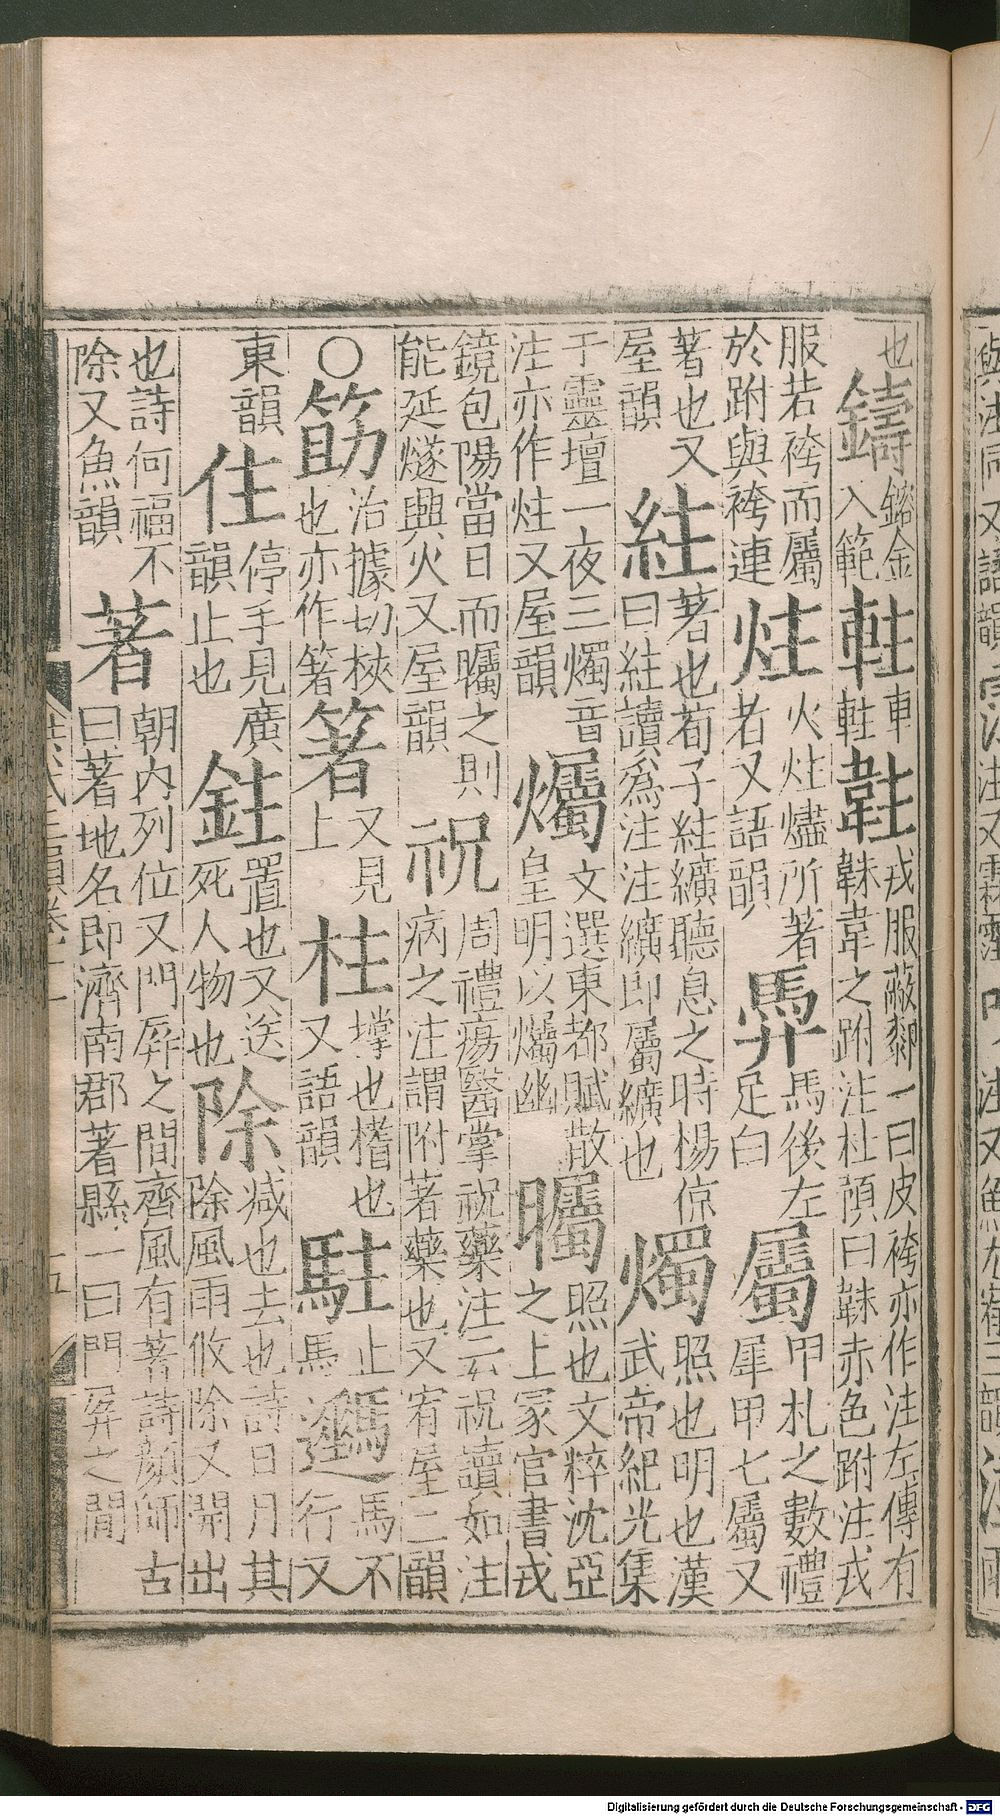 也鑄鎔金入範軴車軴䪒戎服蔽䣛一曰皮袴亦作注左傳有韎韋之跗注杜預曰韎赤色跗注戎
服若袴而屬於跗與袴連炷火炷燼所著者又語韻馵馬後左足白屬甲札之數禮犀甲七屬又
著也又屋韻紸著也荀子紸纊聽息之時楊倞曰紸讀爲注注纊即屬纊也燭照也明也漢武帝紀光集
于靈壇一夜三燭音注亦作炷又屋韻爥文選東都賦散皇明以爥幽曯照也文粹沈亞之上冢官書戎
鏡包陽當日而曯之則能延燧興火又屋韻祝周禮瘍醫掌祝藥注云祝讀如注病之注謂附著藥也又宥屋二韻
○筯治據切梜也亦作箸箸又見上柱撐也榰也又語韻駐止馬馬不行又
東韻住停手見廣韻止也鉒置也又送死人物也除減也去也詩日月其除風雨攸除又開出
也詩何福不除又魚韻著朝內列位又門屏之間齊風有著詩顏師古曰著地名即濟南郡著縣一曰門屏之間
Digitalisierung gefördert durch die Deutsche Forschungsgemeinschaft - DFG